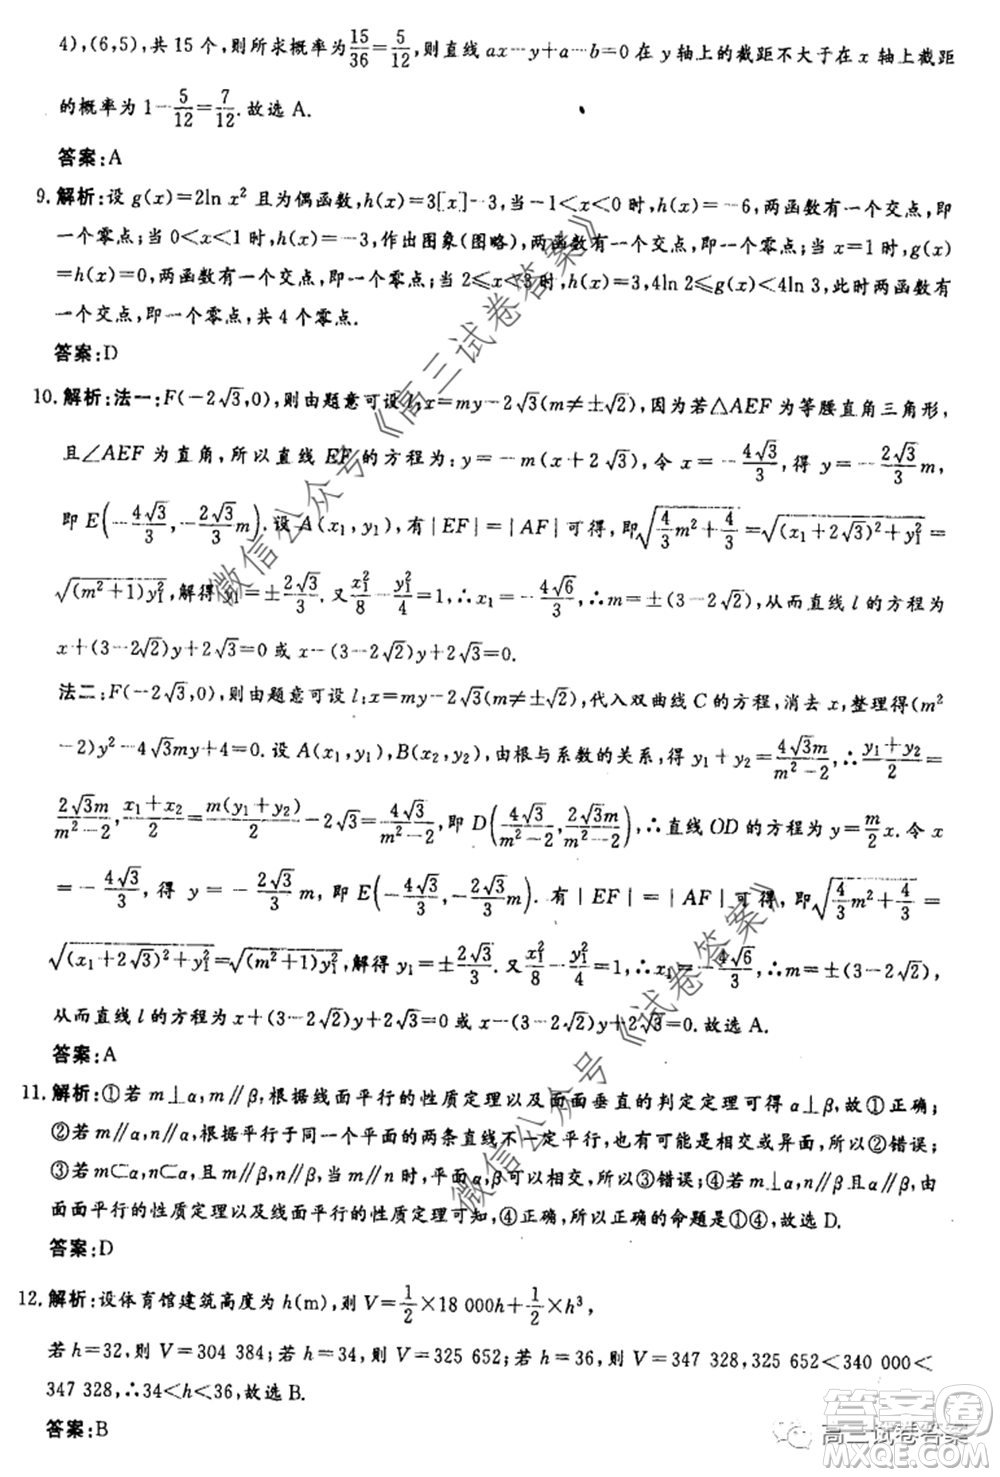 4),(6,5),共 15 个,则所求概率为15/36=5/12,则直线 ax-y+a-b=0 在 y 轴上的截距不大于在 x 轴上截距
的概率为 1-5/12=7/12.故选 A.
答案:A
9. 解析:设 g(x)=2ln x² 且为偶函数,h(x)=3[x]-3,当-1<x<0时,h(x)=-6,两函数有一个交点,即
一个零点;当 0<x<1 时,h(x)=-3,作出图象(图略),两函数有一个交点,即一个零点;当 x=1 时,g(x)
=h(x)=0,两函数有一个交点,即一个零点;当 2≤x<3 时,h(x)=3,4ln 2≤g(x)<4ln 3,此时两函数有
一个交点,即一个零点,共 4 个零点.
答案:D
10. 解析:法一:F(-2√3,0),则由题意可设 l:x=my-2√3(m≠±√2),因为若△AEF 为等腰直角三角形,
且∠AEF 为直角,所以直线 EF 的方程为:y=-m(x+2√3),令 x=-4√3/3,得 y=-2√3/3 m,
即 E(-4√3/3,-2√3/3 m).设 A(x₁,y₁),有|EF|=|AF|可得,即√(4/3 m²+4/3)=√((x₁+2√3)²+y₁²)=
√((m²+1)y₁²),解得 y₁=±2√3/3.又x₁²/8-y₁²/4=1,∴x₁=-4√6/3,∴m=±(3-2√2),从而直线 l 的方程为
x+(3-2√2)y+2√3=0 或 x-(3-2√2)y+2√3=0.
法二:F(-2√3,0),则由题意可设 l:x=my-2√3(m≠±√2),代入双曲线 C 的方程,消去 x,整理得(m²
-2)y²-4√3my+4=0.设 A(x₁,y₁),B(x₂,y₂),由根与系数的关系,得 y₁+y₂=4√3m/(m²-2),∴(y₁+y₂)/2=
2√3m/(m²-2),(x₁+x₂)/2=m(y₁+y₂)/2-2√3=4√3/(m²-2),即 D(4√3/(m²-2),2√3m/(m²-2)),∴直线 OD 的方程为 y=m/2 x.令 x
=-4√3/3,得 y=-2√3/3 m,即 E(-4√3/3,-2√3/3 m).有|EF|=|AF|可得,即√(4/3 m²+4/3)=
√((x₁+2√3)²+y₁²)=√((m²+1)y₁²),解得 y₁=±2√3/3.又x₁²/8-y₁²/4=1,∴x₁=-4√6/3,∴m=±(3-2√2),
从而直线 l 的方程为 x+(3-2√2)y+2√3=0 或 x-(3-2√2)y+2√3=0.故选 A.
答案:A
11. 解析:①若 m⊥α,m∥β,根据线面平行的性质定理以及面面垂直的判定定理可得 α⊥β,故①正确;
②若 m∥α,n∥α,则平行于同一个平面的两条直线不一定平行,也有可能是相交或异面,所以②错误;
③若 m⊂α,n⊂α,且 m∥β,n∥β,当 m∥n 时,平面 α,β 可能相交,所以③错误;④若 m⊥α,n∥β,α∥β,由
面面平行的性质定理以及线面平行的性质定理可知,④正确,所以正确的命题是①④,故选 D.
答案:D
12. 解析:设体育馆建筑高度为 h(m),则 V=1/2×18 000h+1/2×h³,
若 h=32,则 V=304 384;若 h=34,则 V=325 652;若 h=36,则 V=347 328,325 652<340 000<
347 328,∴34<h<36,故选 B.
答案:B
微信公众号《高三试卷答案》
微信公众号《试卷答案》
高三试卷答案
答案卷
MXQE.COM